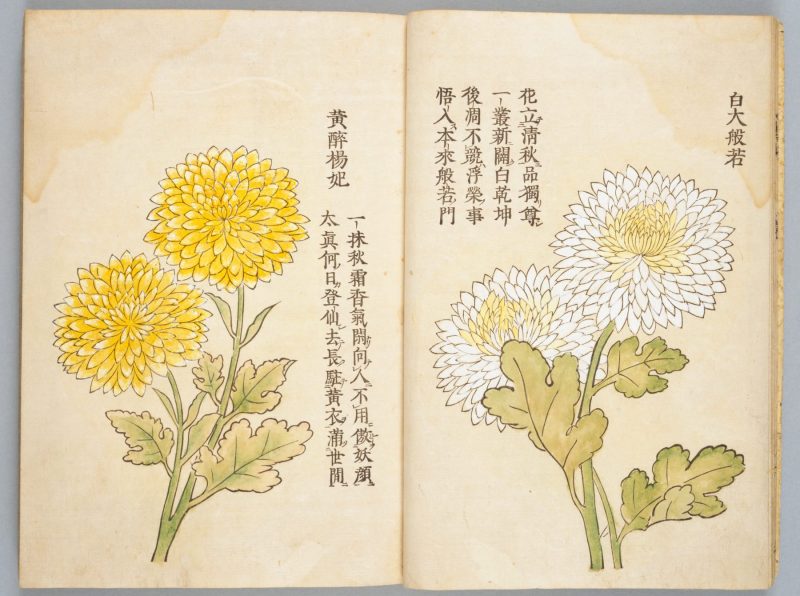 白大般若
花立清秋品獨尊
一叢新白乾坤
後凋不競浮榮事
悟入本來般若門
黃醉楊妃
一抹秋霜香氣向人不用妖顏
太眞何日登仙去長駐黃衣滿世間